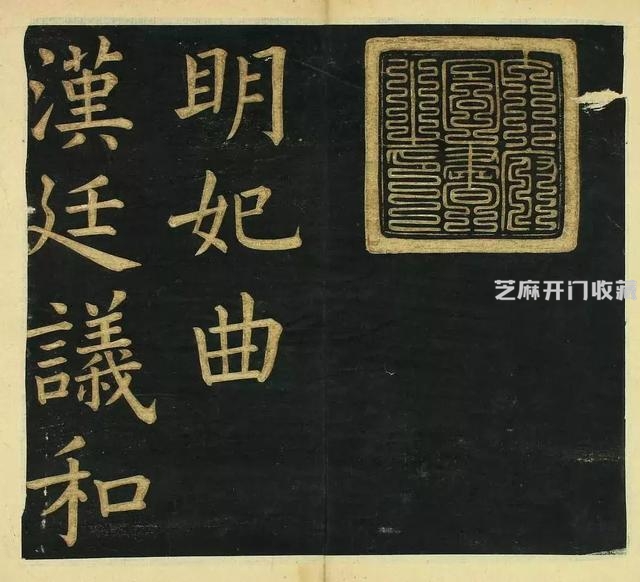 明妃曲
漢廷議和
芝麻开门收藏